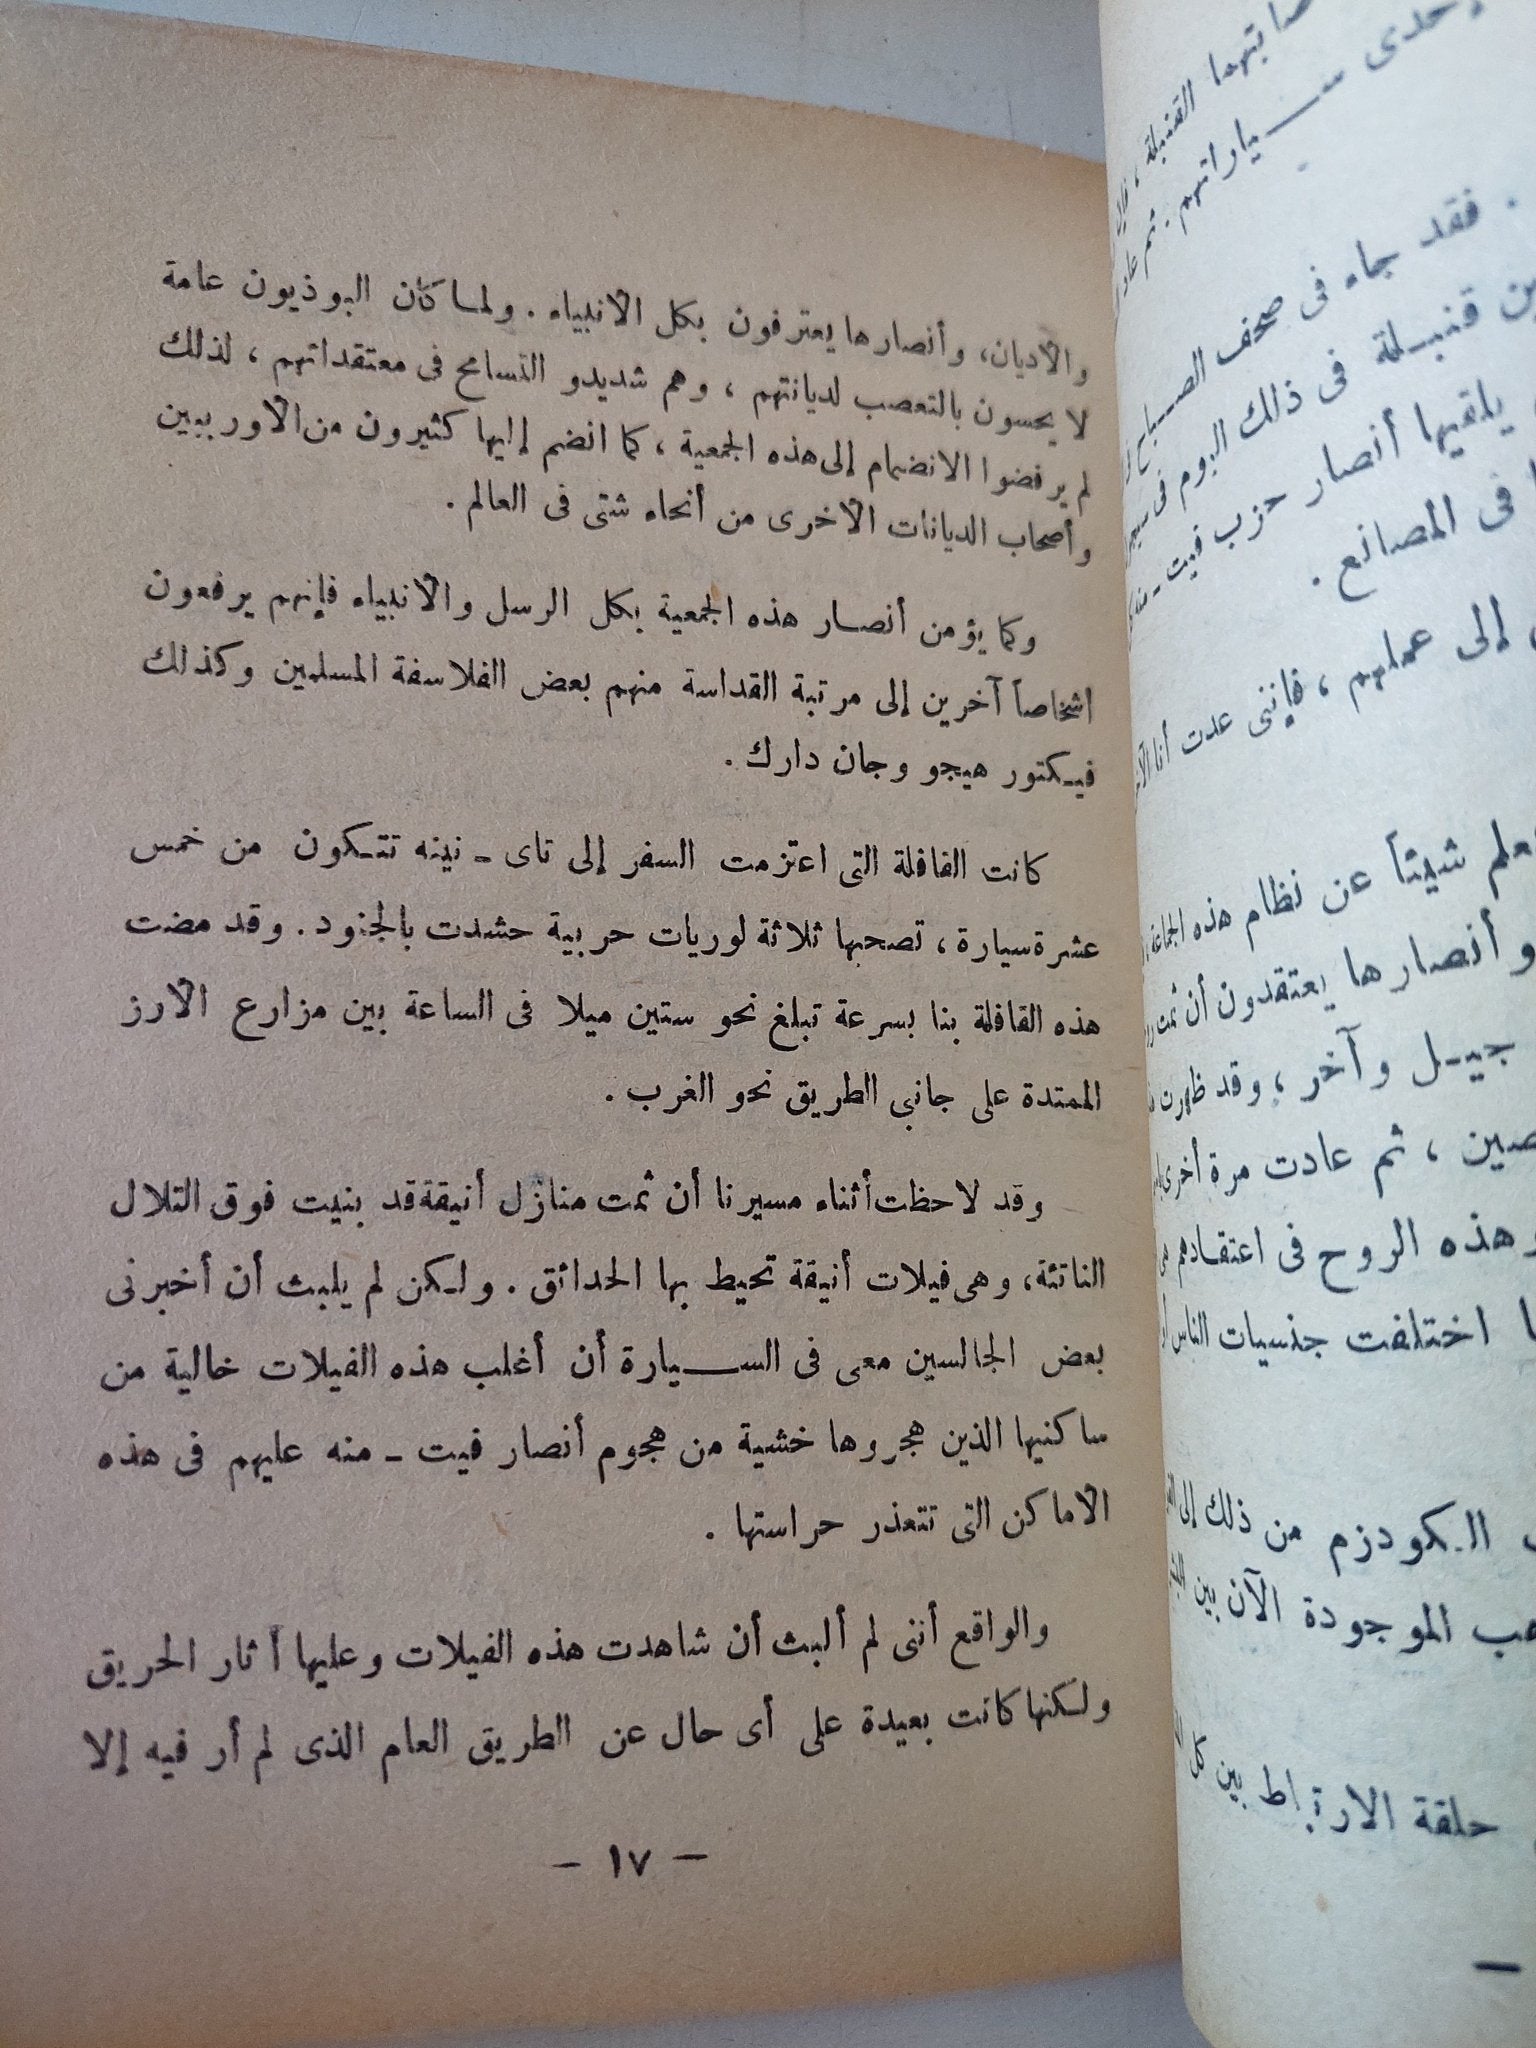 صابتهما القنبلة ،
إحدى سيياراتهم . ثم
. فقد جاء فى صحف الصباح
ين قنبلة فى ذلك اليوم فى
يلقيها أنصار حزب فيت -
فى المصانع .
إلى عملهم ، فإننى عدت أنا
علم شيئاً عن نظام هذه الجماعة
وأنصارها يعتقدون أن ثمت
جيل وآخر ، وقد ظهرت
صين ، ثم عادت مرة أخرى
وهذه الروح فى اعتقادهم
اختلفت جنسيات الناس
الكودزم من ذلك إلى
هب الموجودة الآن بين
حلقة الارتباط بين كل
والاديان، وأنصارها يعترفون بكل الانبياء . ولما كان البوذيون عامة
لا يحسون بالتعصب لديانتهم ، وهم شديدو التسامح فى معتقداتهم ، لذلك
لم يرفضوا الانضمام إلى هذه الجمعية ، كما انضم إليها كثيرون من الاوربيين
وأصحاب الديانات الاخرى من أنحاء شتى فى العالم .
وكما يؤمن أنصار هذه الجمعية بكل الرسل والانبياء فإنهم يرفعون
اشخاصاً آخرين إلى مرتبة القداسة منهم بعض الفلاسفة المسلمين وكذلك
فيكتور هيجو وجان دارك .
كانت القافلة التى اعتزمت السفر إلى تاى - نينه تتكون من خمس
عشرة سيارة ، تصحبها ثلاثة لوريات حربية حشدت بالجنود . وقد مضت
هذه القافلة بنا بسرعة تبلغ نحو ستين ميلا فى الساعة بين مزارع الارز
الممتدة على جانبى الطريق نحو الغرب .
وقد لاحظت أثناء مسيرنا أن ثمت منازل أنيقة قد بنيت فوق التلال
الناتئة، وهى فيلات أنيقة تحيط بها الحدائق . ولكن لم يلبث أن أخبرنى
بعض الجالسين معى فى السيارة أن أغلب هذه الفيلات خالية من
ساكنيها الذين هجروها خشية من هجوم أنصار فيت - منه عليهم فى هذه
الاماكن التى تتعذر حراستها .
والواقع أننى لم ألبث أن شاهدت هذه الفيلات وعليها آثار الحريق
ولكنها كانت بعيدة على أى حال عن الطريق العام الذى لم أر فيه إلا
- ١٧ -